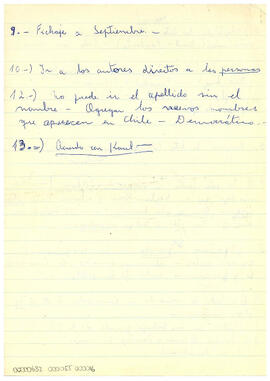 9.- Fichaje a Septiembre.-
10-) Ir a los autores directos a les personas
12-) no puede ir el apellido sin el
nombre - Agregar los nuevos nombres
que aparecen en Chile - Democrático.-
13.-) Acuerdo con
00000632 000055 000016